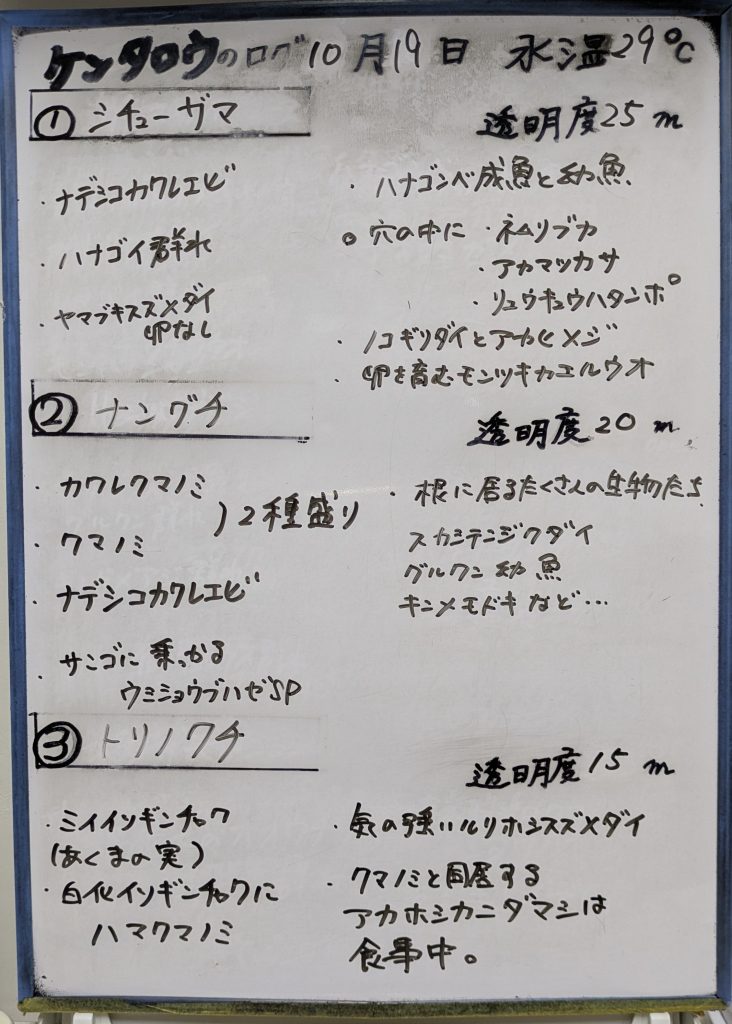 ケンタロウのログ 10月19日 水温29℃
① シチューザマ
透明度25m
ナデシコカクレエビ
・ハナゴイ群れ
・ヤマブキスズメダイ
卵なし
・ハナゴンベ成魚と幼魚
○穴の中に・ネムリブカ
・アカマツカサ
・リュウキュウハタンポ
・ノコギリダイとアカヒメジ
・卵を育むモンツキカエルウオ
② ナングチ
透明度20m
・カクレクマノミ
・クマノミ
)2種盛り
・ナデシコカクレエビ
・サンゴに乗っかる
ウミショウブハゼSP
・根に居るたくさんの生物たち
スカシテンジクダイ
グルクン幼魚
キンメモドキなど…
③ トリノクチ
透明度15m
・ミイイソギンチャク
(あくまの実)
・白化イソギンチャクに
ハマクマノミ
・気の強いルリホシスズメダイ
・クマノミと同居する
アカホシカニダマシは
食事中。